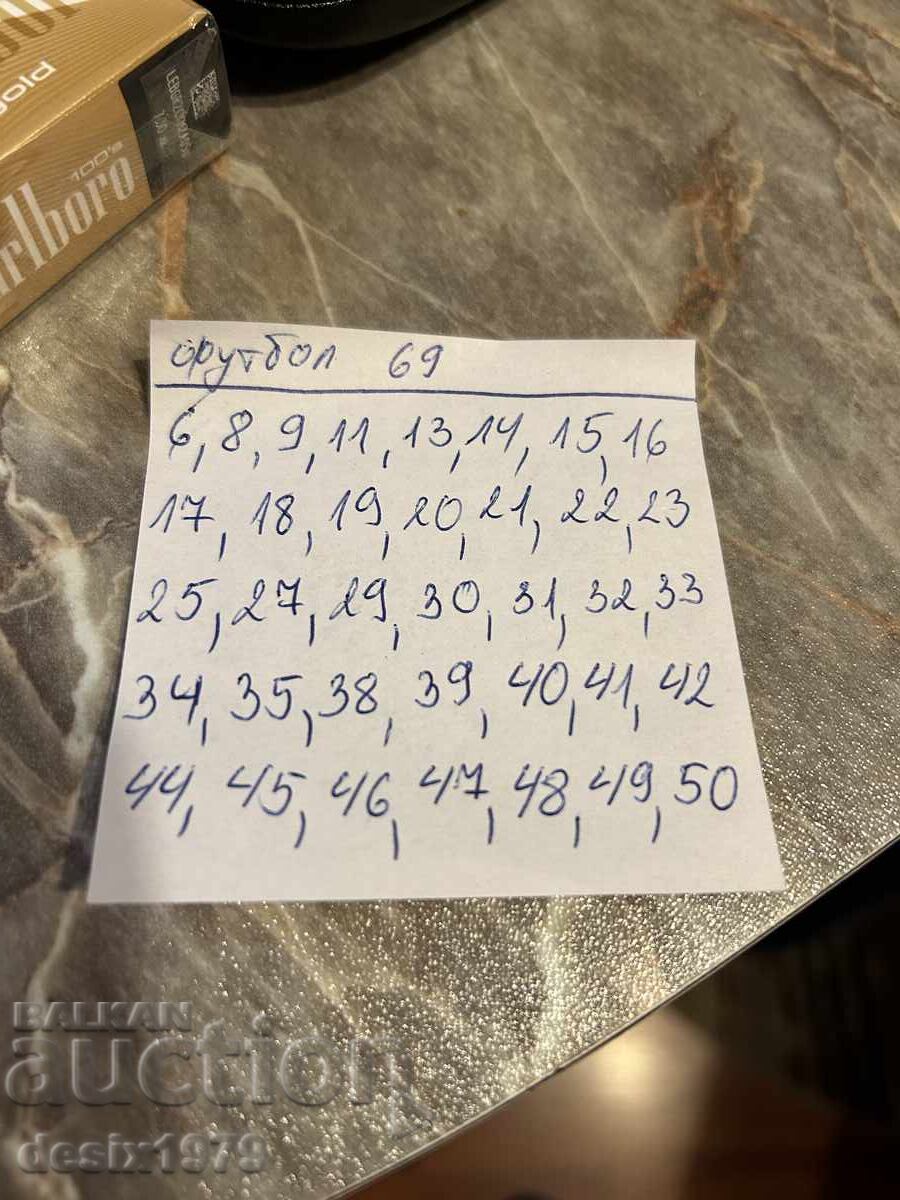 gold
100's
arlboro
футбол 69
6, 8, 9, 11, 13, 14, 15, 16
17, 18, 19, 20, 21, 22, 23
25, 27, 29, 30, 31, 32, 33
34, 35, 38, 39, 40, 41, 42
44, 45, 46, 47, 48, 49, 50
BALKAN
auction
desix1979